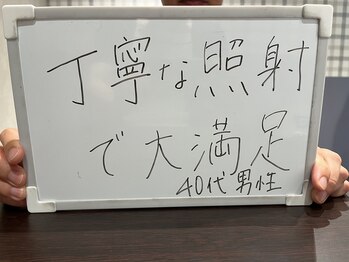 丁寧な照射
で大満足
40代男性